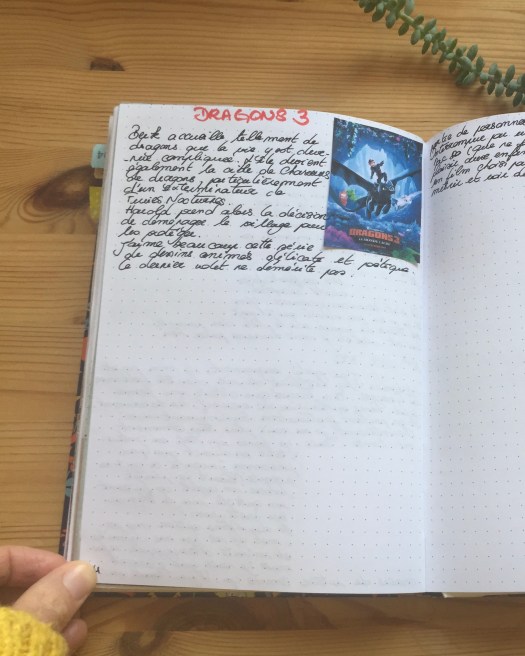 DRAGONS 3
Berk accueille tellement de
dragons que la vie y est deve-
-nue compliquée. Elle devient
également la cible de chasseurs
de dragons, particulièrement
d'un Exterminateur de
Furies Nocturnes.
Harold prend alors la décision
de déménager le village pour
les protéger.
J'aime beaucoup cette série
de dessins animés délicate et poétique
le dernier volet ne démérite pas.
DRAGONS 3
de personnes
par
film choisi
et